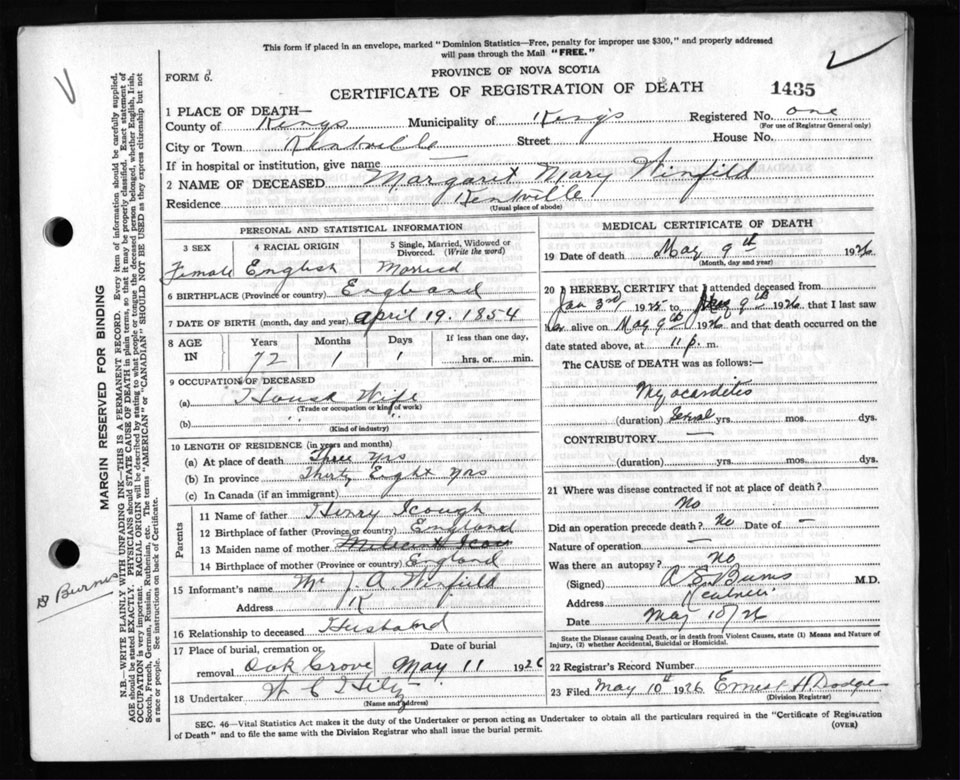 This form if placed in an envelope, marked "Dominion Statistics—Free, penalty for improper use $300," and properly addressed
will pass through the Mail "FREE."
PROVINCE OF NOVA SCOTIA
FORM 6.
CERTIFICATE OF REGISTRATION OF DEATH
1435
1 PLACE OF DEATH—
County of Kings Municipality of Kings Registered No. one
(For use of Registrar General only)
City or Town Kentville Street — House No.
If in hospital or institution, give name
2 NAME OF DECEASED Margaret Mary Winfild
Residence Kentville
(Usual place of abode)
PERSONAL AND STATISTICAL INFORMATION
3 SEX 4 RACIAL ORIGIN 5 Single, Married, Widowed or Divorced. (Write the word)
Female English Married
6 BIRTHPLACE (Province or country) England
7 DATE OF BIRTH (month, day and year) April 19. 1854
8 AGE IN Years Months Days If less than one day,
72 1 1 hrs. or min.
9 OCCUPATION OF DECEASED
(a) House Wife
(Trade or occupation or kind of work)
(b) " "
(Kind of industry)
10 LENGTH OF RESIDENCE (in years and months)
(a) At place of death Three yrs
(b) In province Thirty Eight yrs
(c) In Canada (if an immigrant)
Parents
11 Name of father Henry Icough
12 Birthplace of father (Province or country) England
13 Maiden name of mother
14 Birthplace of mother (Province or country) England
15 Informant's name Mr J. A. Winfild
Address K
16 Relationship to deceased Husband
17 Place of burial, cremation or removal Date of burial
Oak Grove May 11 1926
18 Undertaker W C Hiltz
(Name and address)
MEDICAL CERTIFICATE OF DEATH
19 Date of death May 9th 1926
(Month, day and year)
20 I HEREBY CERTIFY that I attended deceased from
Jan 3rd 1925 to May 9th 1926, that I last saw
her alive on May 9th 1926 and that death occurred on the
date stated above, at 11 p. m.
The CAUSE OF DEATH was as follows:—
Myocarditis
(duration) Several yrs. mos. dys.
CONTRIBUTORY —
(duration) yrs. mos. dys.
21 Where was disease contracted if not at place of death?
No
Did an operation precede death? No Date of —
Nature of operation —
Was there an autopsy? No
(Signed) Burns M.D.
Address
Date May 10/26
State the Disease causing Death, or in death from Violent Causes, state (1) Means and Nature of
Injury, (2) whether Accidental, Suicidal or Homicidal.
22 Registrar's Record Number
23 Filed May 10th 1926 Ernest H. Dodge
(Division Registrar)
SEC. 46—Vital Statistics Act makes it the duty of the Undertaker or person acting as Undertaker to obtain all the particulars required in the "Certificate of Registration
of Death" and to file the same with the Division Registrar who shall issue the burial permit.
(OVER)
MARGIN RESERVED FOR BINDING
N.B.—WRITE PLAINLY WITH UNFADING INK—THIS IS A PERMANENT RECORD. Every item of information should be carefully supplied.
AGE should be stated EXACTLY. PHYSICIANS should STATE CAUSE OF DEATH in plain terms, so that it may be properly classified. Exact statement of
OCCUPATION is very important. RACIAL ORIGIN will be described by stating to what people or tongue the deceased person belonged, whether English, Irish,
Scotch, French, German, Russian, Ruthenian, etc. The terms "AMERICAN" or "CANADIAN" SHOULD NOT BE USED as they express citizenship but not
a race or people. See instructions on back of Certificate.
Burns